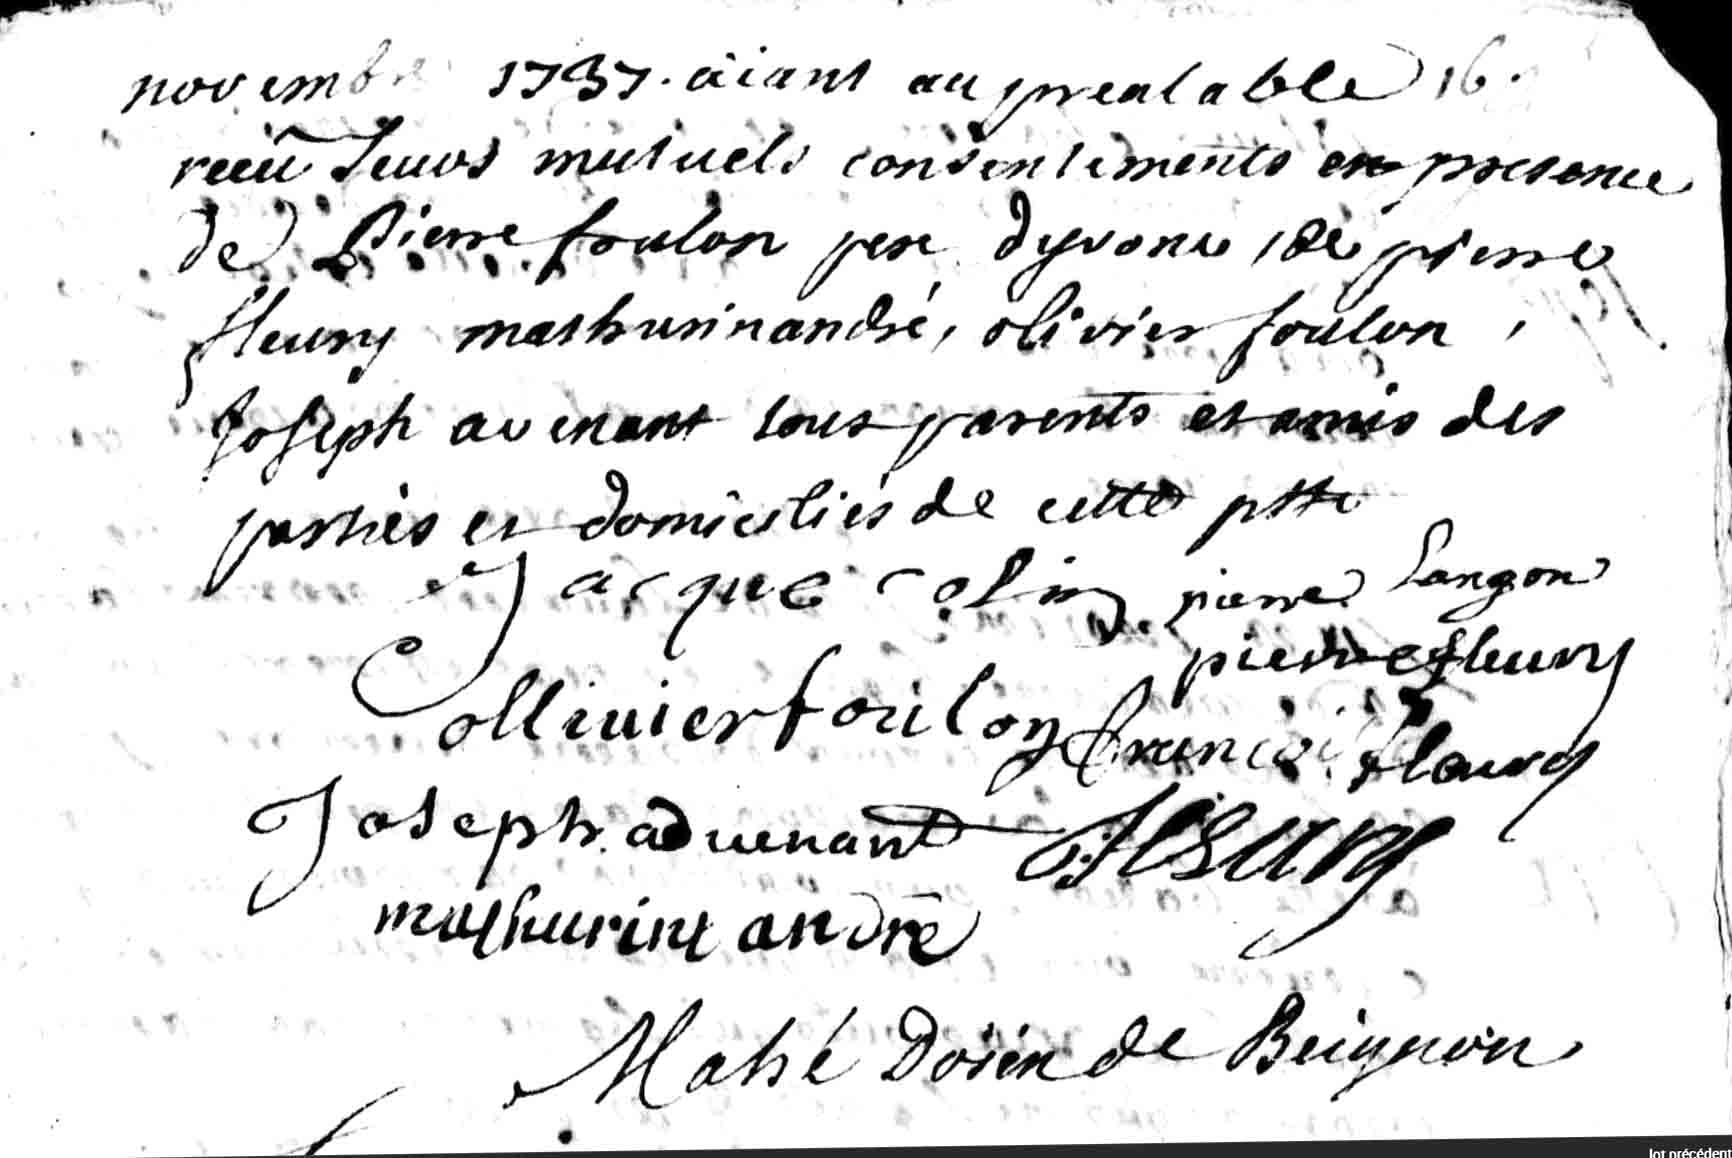 novembre 1737. aiant au prealable 16.
receü leurs mutuels consentements en presence
de Pierre foulon pere dyvonne, de pierre
fleury mathurin andré, olivier foulon,
Joseph avenant tous parents et amis des
parties et domiciliés de cette psse
Jacque Colin pierre Langon
pierre fleury
ollivier foulon francois fleury
Joseph advenant fleury
mathurin andré
Mahé Doien de Beignon
lot précédent